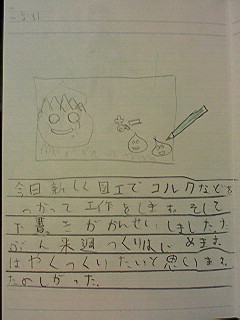 今日新しく図工でコルクなどを
つかって工作をします。そして
下書きがかんせいしました。
ぶん来週つくりはじめます。
はやくつくりたいと思います。
たのしかった。